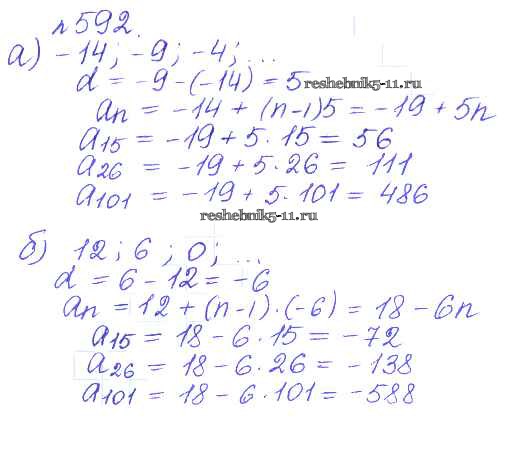 №592.
а) -14; -9; -4; ...
d = -9 - (-14) = 5
reshebnik5-11.ru
an = -14 + (n-1)5 = -19 + 5n
a15 = -19 + 5·15 = 56
a26 = -19 + 5·26 = 111
a101 = -19 + 5·101 = 486
reshebnik5-11.ru
б) 12; 6; 0; ...
d = 6 - 12 = -6
an = 12 + (n-1)·(-6) = 18 - 6n
a15 = 18 - 6·15 = -72
a26 = 18 - 6·26 = -138
a101 = 18 - 6·101 = -588